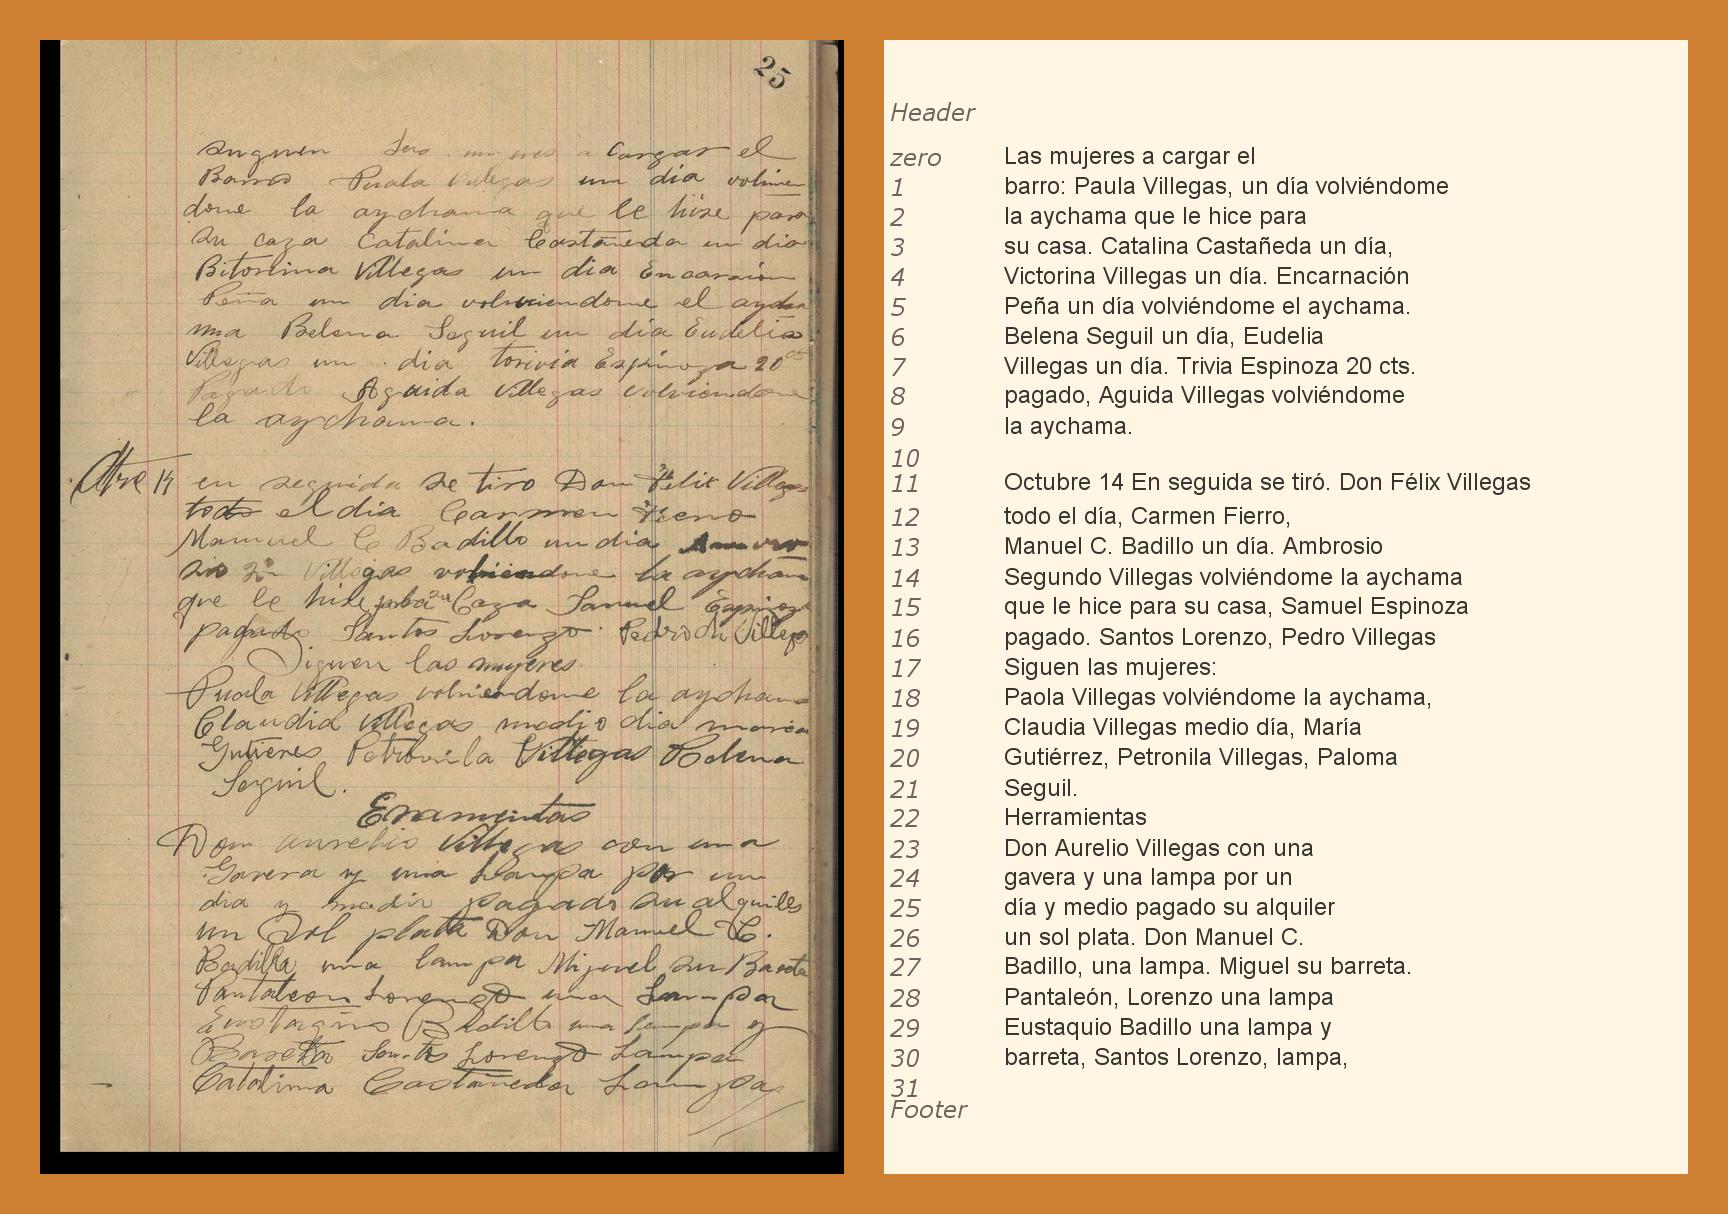 25
siguen las mujeres a Cargar el
Barro Puala Villegas un dia volvien
dome la aychama que le hise para
su caza Catalina Castañeda un dia
Bitorina Villegas un dia Encarnion
Peña un dia volviendome el aycha
ma Belena Seguil un dia Eudelia
Villegas un dia torivia Espinoza 20 cts
Pagado Aguida Villegas volviendome
la aychama.
Otre 14 en seguida se tiro Don Felix Villegas
todo el dia Carmen Fierro
Manuel C Badillo un dia
sio 2º Villegas volviendome la aychama
que le hise para su Caza Samuel Espinoza
pagado Santos Lorenzo Pedro Villegas
Siguen las mujeres
Puala Villegas volviendome la aychama
Claudia Villegas medio dia maria
Gutieres Petronila Villegas Belena
Seguil.
Eramientas
Don aurelio Villegas con una
Gavera y una Lampa por un
dia y medio pagado su alquiler
un Sol plata Don Manuel C.
Badillo una lampa Miguel su Bareta
Pantaleon Lorenzo una Lampa
Eustaquio Badillo una lampa y
Baretta Santos Lorenzo Lampa
Catalina Castañeda Lampa
Header
zero Las mujeres a cargar el
1 barro: Paula Villegas, un día volviéndome
2 la aychama que le hice para
3 su casa. Catalina Castañeda un día,
4 Victorina Villegas un día. Encarnación
5 Peña un día volviéndome el aychama.
6 Belena Seguil un día, Eudelia
7 Villegas un día. Trivia Espinoza 20 cts.
8 pagado, Aguida Villegas volviéndome
9 la aychama.
10
11 Octubre 14 En seguida se tiró. Don Félix Villegas
12 todo el día, Carmen Fierro,
13 Manuel C. Badillo un día. Ambrosio
14 Segundo Villegas volviéndome la aychama
15 que le hice para su casa, Samuel Espinoza
16 pagado. Santos Lorenzo, Pedro Villegas
17 Siguen las mujeres:
18 Paola Villegas volviéndome la aychama,
19 Claudia Villegas medio día, María
20 Gutiérrez, Petronila Villegas, Paloma
21 Seguil.
22 Herramientas
23 Don Aurelio Villegas con una
24 gavera y una lampa por un
25 día y medio pagado su alquiler
26 un sol plata. Don Manuel C.
27 Badillo, una lampa. Miguel su barreta.
28 Pantaleón, Lorenzo una lampa
29 Eustaquio Badillo una lampa y
30 barreta, Santos Lorenzo, lampa,
31
Footer